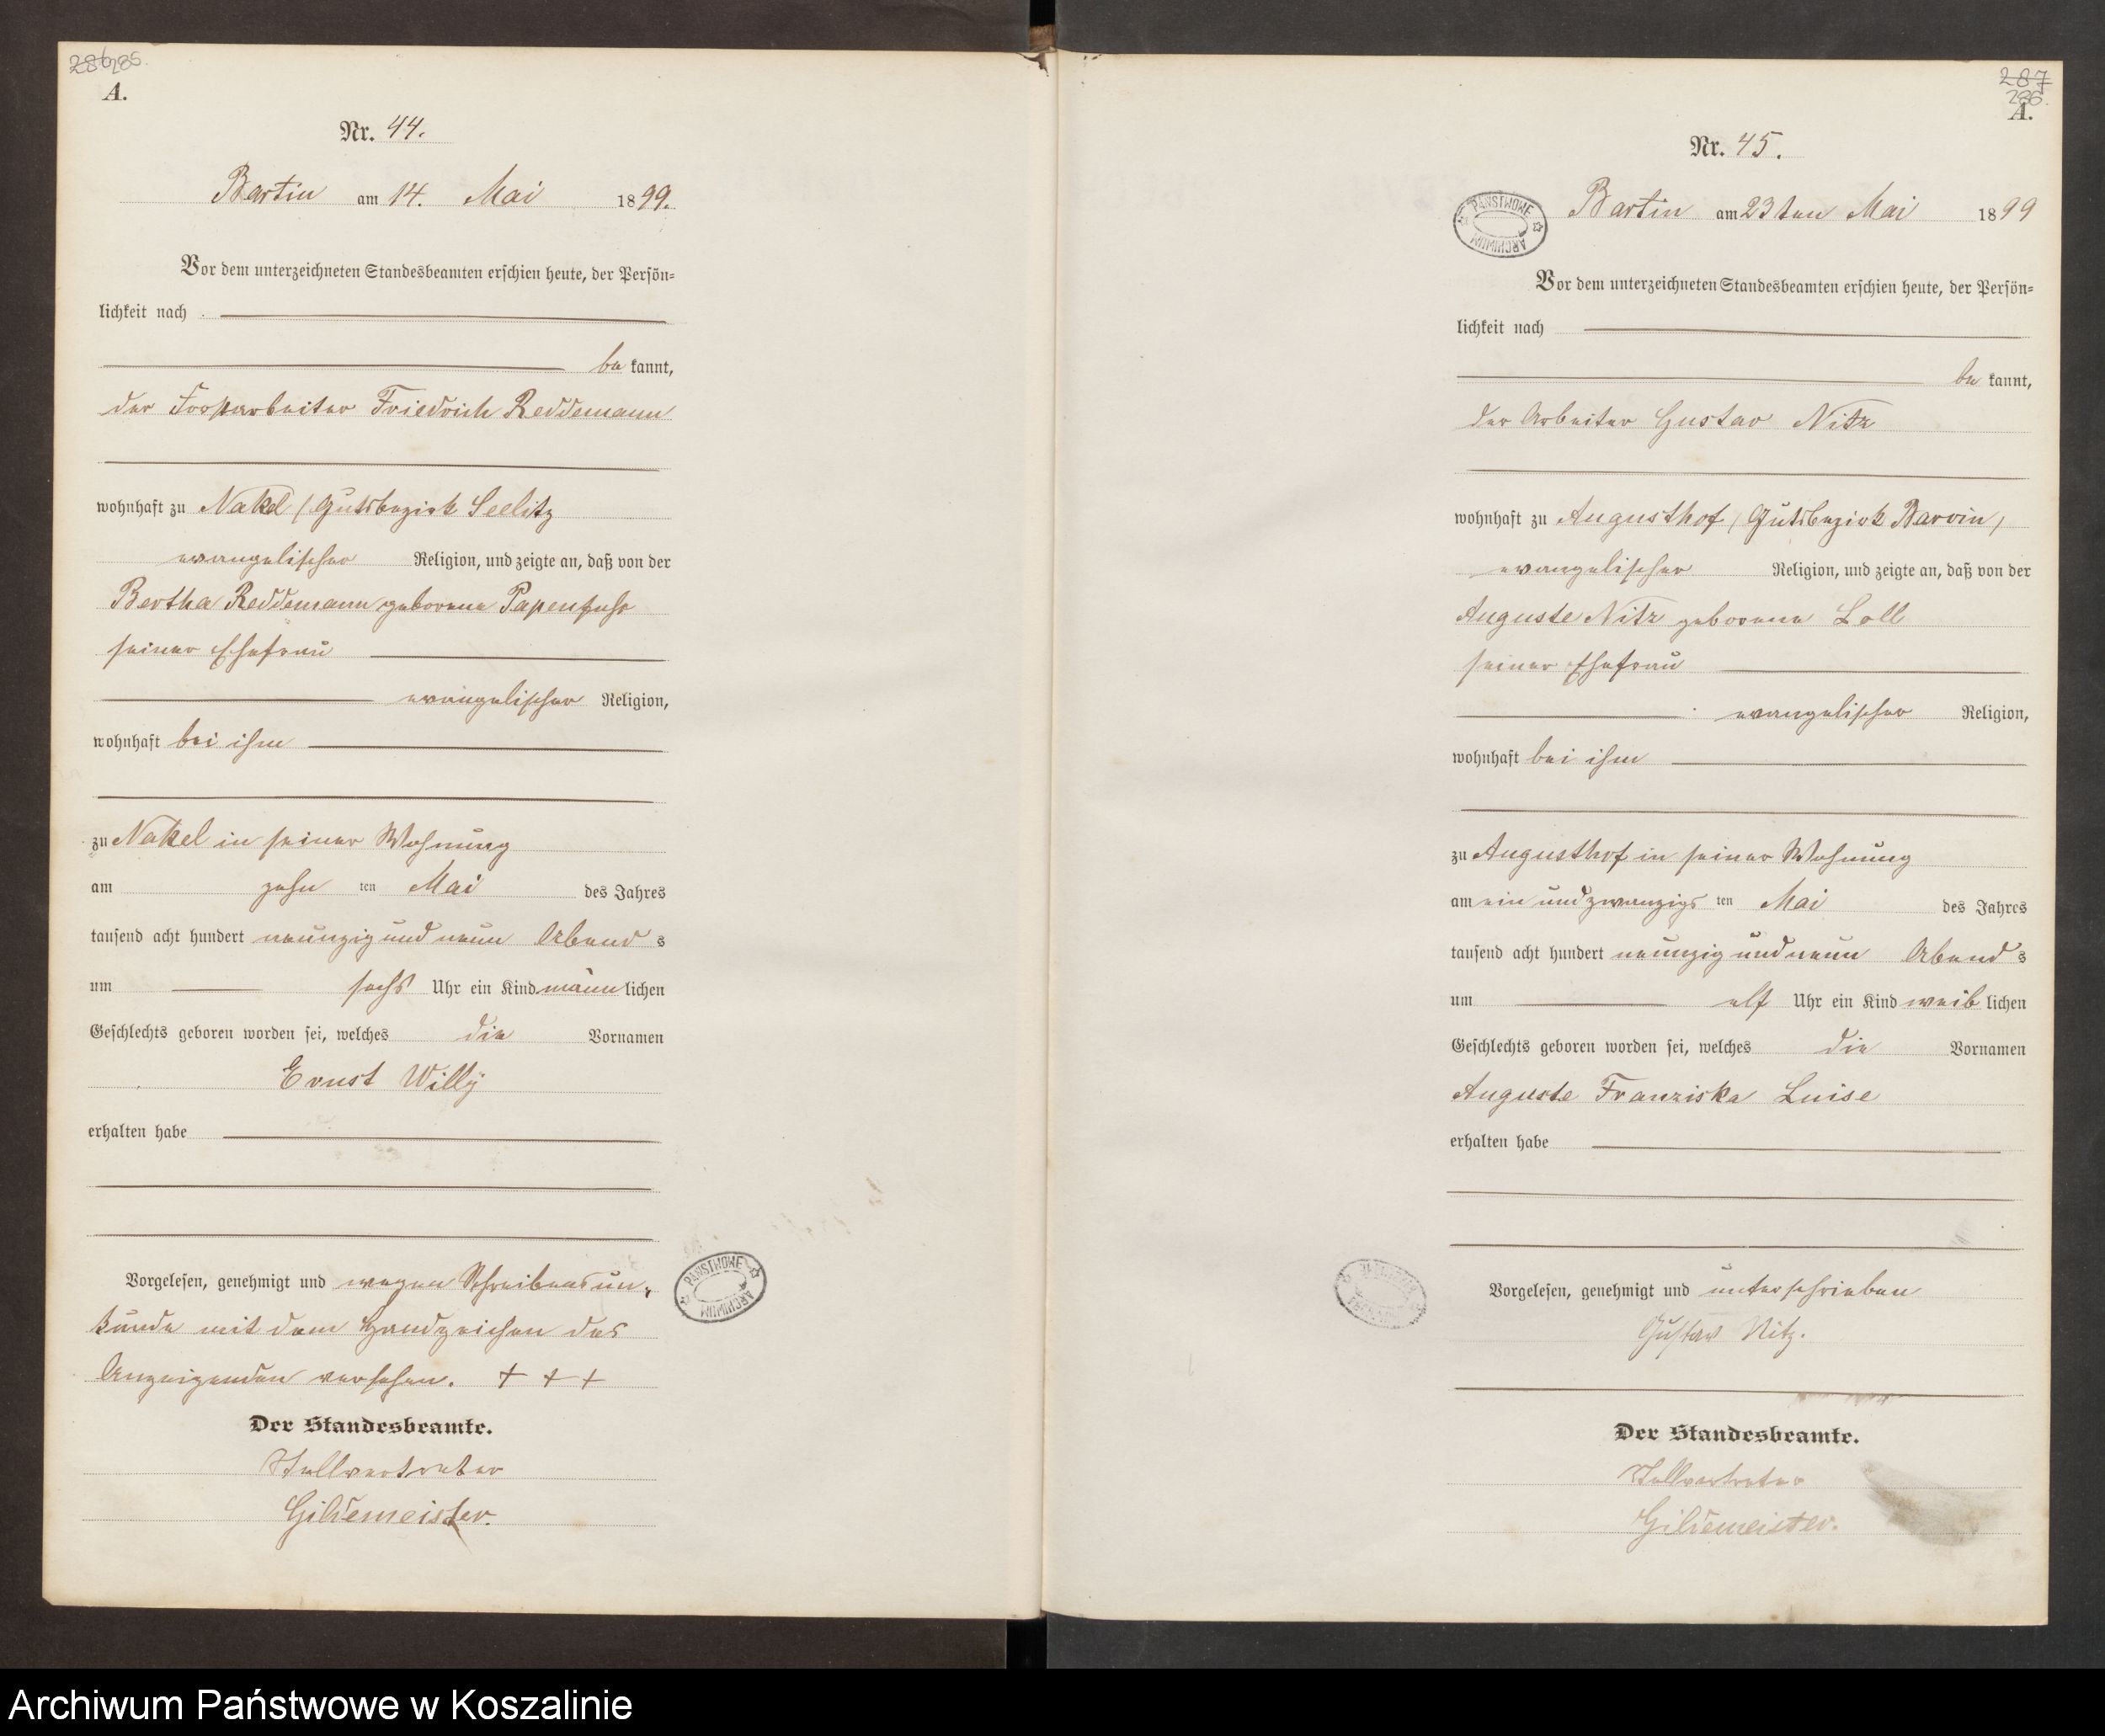 286 285.
A.
Nr. 44.
Bartin am 14. Mai 1899.
Vor dem unterzeichneten Standesbeamten erschien heute, der Persön=
lichkeit nach
be kannt,
der Forstarbeiter Friedrich Reddemann
wohnhaft zu Nakel /Gutsbezirk Seelitz
evangelischer Religion, und zeigte an, daß von der
Bertha Reddemann geborene Papenfuhs
seiner Ehefrau
evangelischer Religion,
wohnhaft bei ihm
zu Nakel in seiner Wohnung
am zehn ten Mai des Jahres
tausend acht hundert neunzig und neun Abend s
um sechs Uhr ein Kind männ lichen
Geschlechts geboren worden sei, welches die Vornamen
Ernst Willy
erhalten habe
Vorgelesen, genehmigt und wegen Schreibensun-
kunde mit dem Handzeichen des
Anzeigenden versehen. + + +
Der Standesbeamte.
Stellvertreter
Gildemeister.
PAŃSTWOWE
ARCHIWUM
287
286.
A.
Nr. 45.
PAŃSTWOWE
ARCHIWUM
Bartin am 23ten Mai 1899
Vor dem unterzeichneten Standesbeamten erschien heute, der Persön=
lichkeit nach
be kannt,
der Arbeiter Gustav Nitz
wohnhaft zu Augusthof /Gutsbezirk Barvin/
evangelischer Religion, und zeigte an, daß von der
Auguste Nitz geborene Loll
seiner Ehefrau
evangelischer Religion,
wohnhaft bei ihm
zu Augusthof in seiner Wohnung
am ein und zwanzigs ten Mai des Jahres
tausend acht hundert neunzig und neun Abend s
um elf Uhr ein Kind weib lichen
Geschlechts geboren worden sei, welches die Vornamen
Auguste Franziska Luise
erhalten habe
Vorgelesen, genehmigt und unterschrieben
Gustav Nitz.
Der Standesbeamte.
Stellvertreter
Gildemeister.
Archiwum Państwowe w Koszalinie